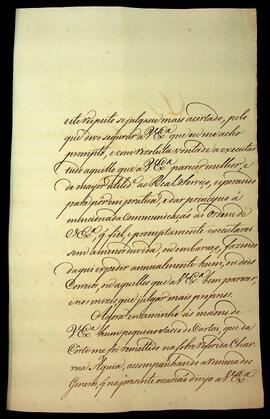 este respeito se julgasse mais acertado, pelo
que devo segurar a V. Exª que eu me acho
prompto, e com resoluta vontade a executar
tudo aquillo que a V. Exª parecer melhor, e
de mayor utilidᵉ do Real Serviço, esperando
para por em pratica, e dar principio á
mencionada Communicação as Ordens de
V. Exª q. fiel e promptamente executarei
sem a menor duvida, ou embaraço, fazendo
daqui expedir annualmente hum, ou dois
Correios, ou aquelles que a V. Exª bem parecer,
e nos mezes que julgar mais proprios.
Agora encaminho ás maons de
V. Exª hum pequeno Sacco de Cartas, que da
Corte me foi remettido na sobredᵃ Char
rua Aguia, acompanhando a remessa dos
Generos, q. na presente occazião dirijo a V. Exª